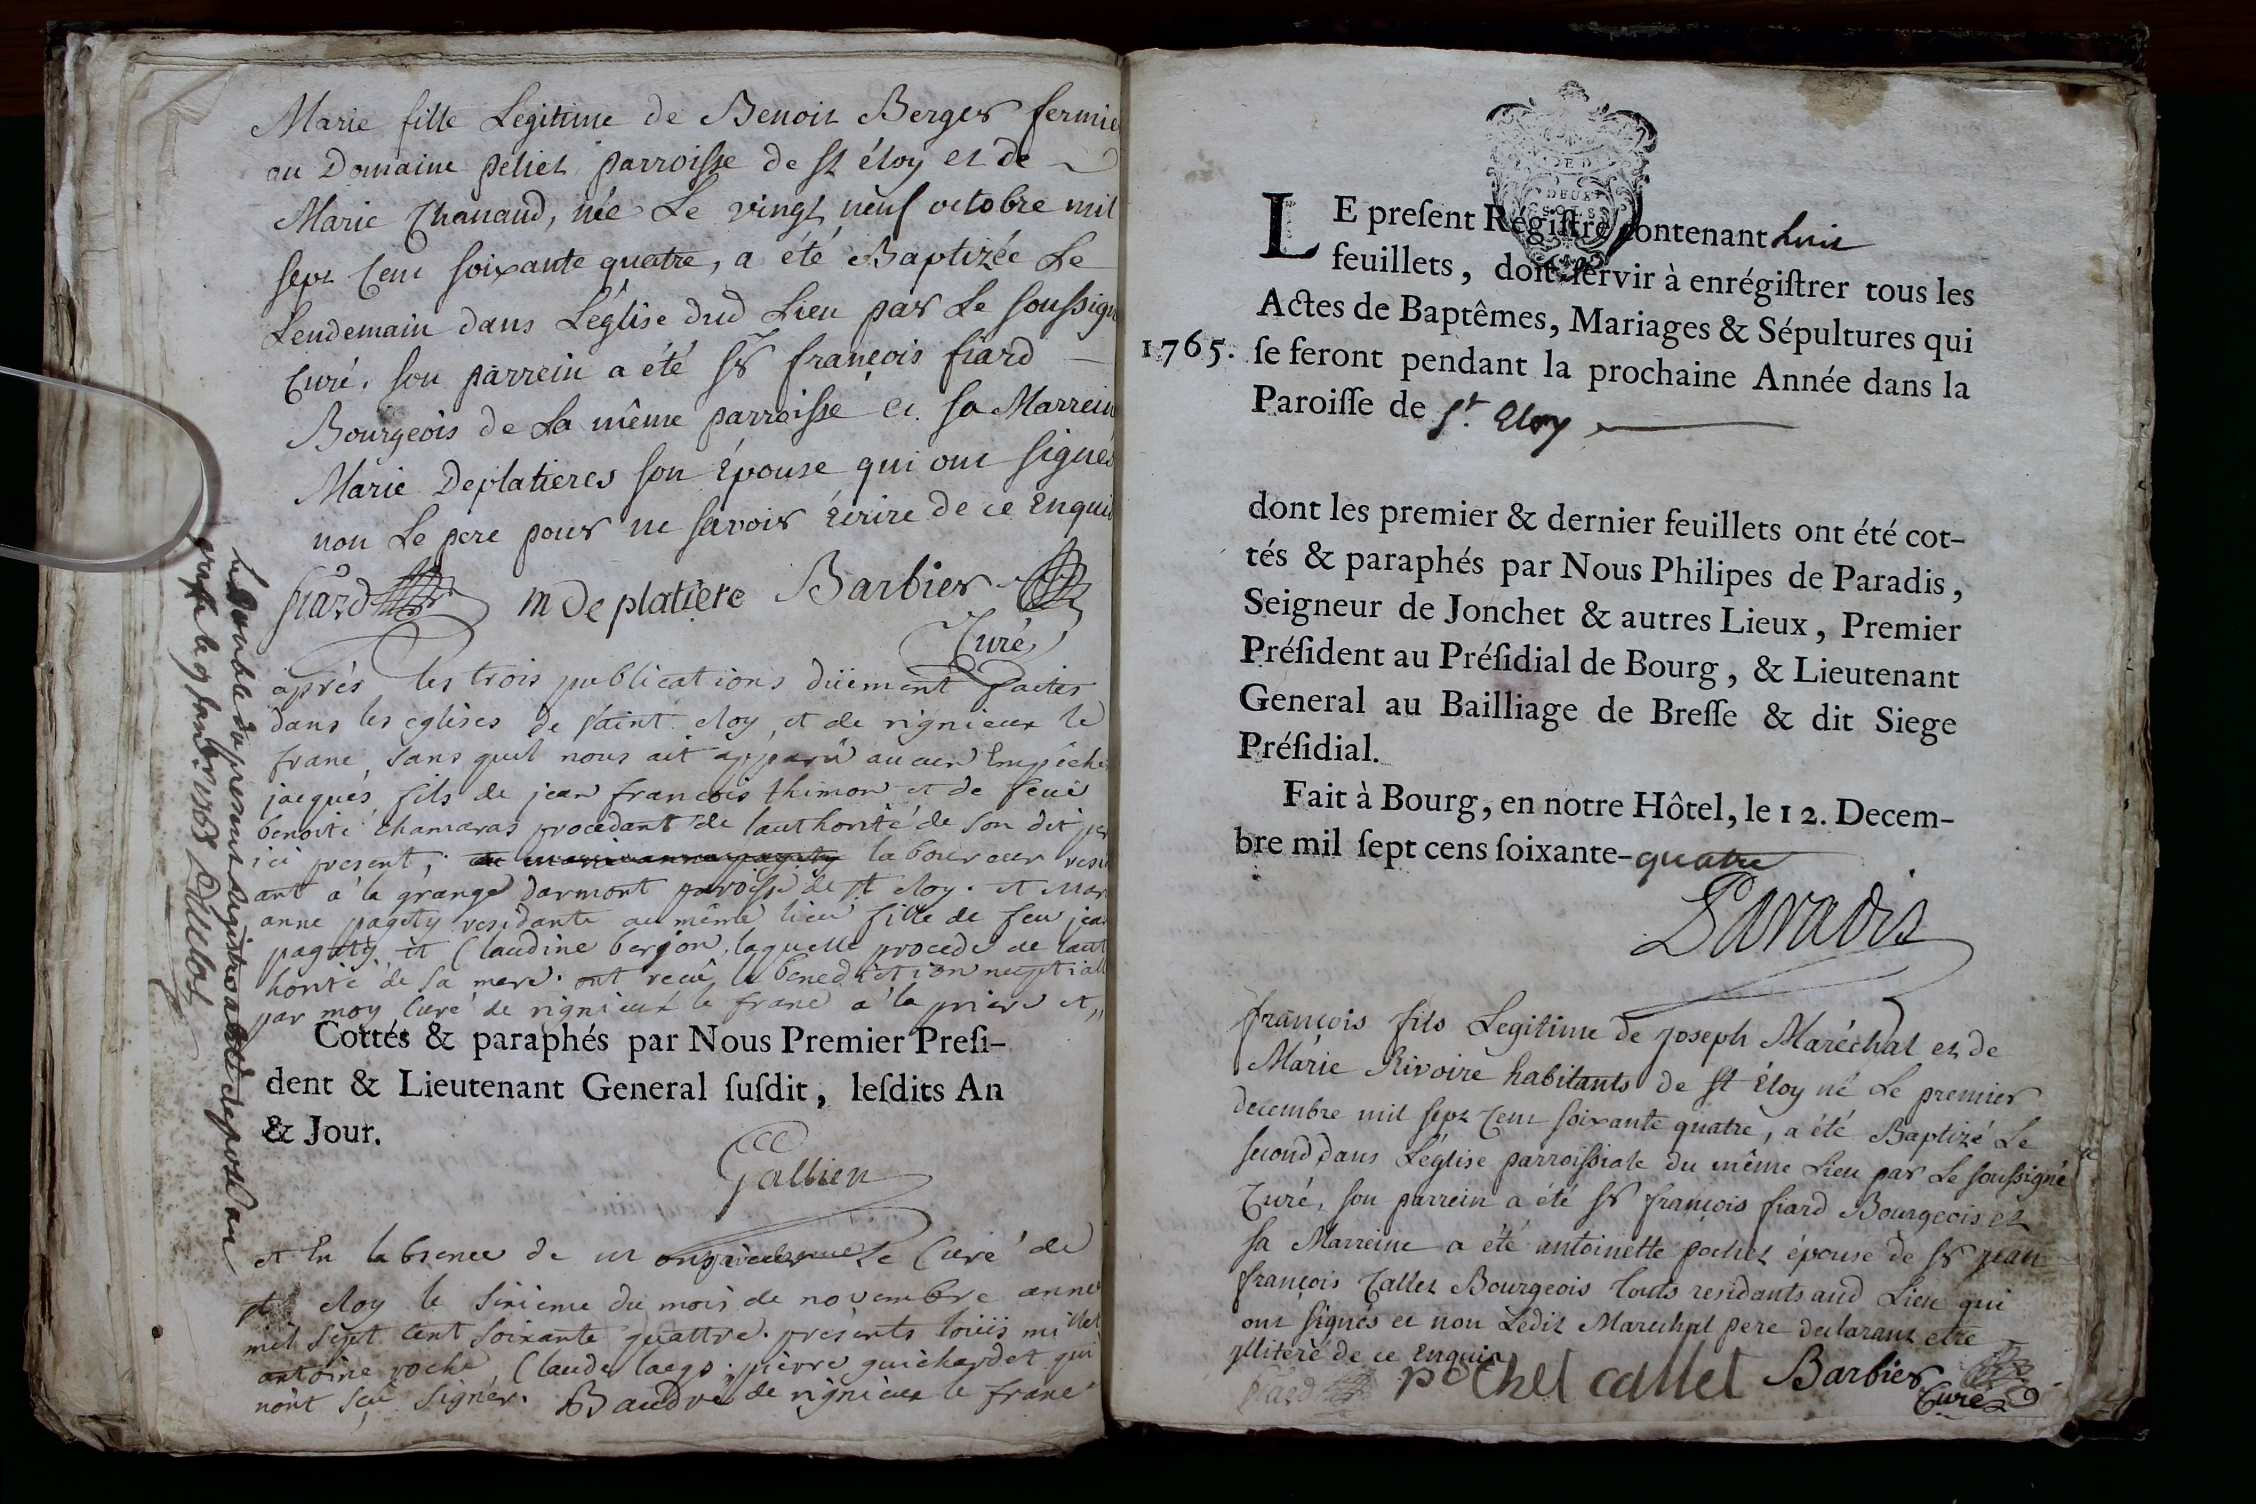 Marie fille Legitime de Benoit Berger fermie
au Domaine peliet parroisse de st éloy et de
Marie Chanaud, née Le vingt neuf octobre mil
sept Cent soixante quatre, a été Baptizée Le
Lendemain dans L'église dud Lieu par Le soussign
Curé. son parrein a été sr françois fiard
Bourgeois de La même parroisse et sa Marrein
Marie Deplatieres son épouse qui ont signés
non Le pere pour ne savoir écrire de ce Enquis
fiard m De platiere Barbier
Curé
après les trois publications düement faites
dans les eglises de saint eloy, et de rignieux le
franc, sans quil nous ait apparu aucun Empêche
jacques fils de jean françois thimon et de feüe
benoite chamaras procedant de lauthorité de son dit per
ici present, laboureur resid
ant à la grange darmont paroisse de st eloy. et mar
anne pagety residante au même lieu fille de feu jean
pagety et Claudine berjon, laquelle procede de laut
horité de sa mere. ont reçû la benediction nuptiall
par moy Curé de rignieux le franc à la priere et,,
Cottés & paraphés par Nous Premier Preſi-
dent & Lieutenant General ſuſdit, leſdits An
& Jour.
Gallien
et En labsence de le Curé de
st eloy le sixieme du mois de novembre anneé
mil sept cent soixante quattre. presents loüis millet
antoine roche Claude laego. pierre guichardet qui
n'ont sçu signer. Baudre de rignieux le franc
Le double du present Registre a été deposé au
greffe le 9 janvr 1765 Duclos
LE preſent Régiſtre contenant huit
feuillets, doit ſervir à enrégiſtrer tous les
Actes de Baptêmes, Mariages & Sépultures qui
1765. ſe feront pendant la prochaine Année dans la
Paroiſſe de St. Eloy
dont les premier & dernier feuillets ont été cot-
tés & paraphés par Nous Philipes de Paradis,
Seigneur de Jonchet & autres Lieux, Premier
Préſident au Préſidial de Bourg, & Lieutenant
General au Bailliage de Breſſe & dit Siege
Préſidial.
Fait à Bourg, en notre Hôtel, le 12. Decem-
bre mil ſept cens ſoixante-quatre
Paradis
françois fils Legitime de Joseph Maréchal et de
Marie Rivoire habitants de st Eloy né Le premier
decembre mil sept Cent soixante quatre, a été Baptizé Le
second dans L'église parroissiale du même Lieu par Le soussigné
Curé, son parrein a été sr françois fiard Bourgeois et
sa Marreine a été antoinette pochet épouse de sr jean
françois Callet Bourgeois touts residants aud Lieu qui
ont signés et non Ledit Marechal pere declarant etre
yllitéré de ce Enquis
fiard pochet callet Barbier
Curé